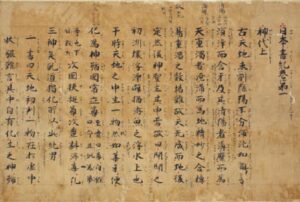 日本書紀巻第一
神代上
古天地未剖陰陽不分渾沌如鷄子
溟涬而含牙及其清陽者薄靡而為
天重濁者淹滞而為地精妙之合搏
易重濁之凝竭難故天先成而地後
定然後神聖生其中焉故曰開闢之
初洲壤浮漂譬猶游魚之浮水上也
于時天地之中生一物状如葦牙便
化為神号國常立尊
次國狭槌尊次豊斟渟尊凡
三神矣乾道獨化所以成此純男
一書曰天地初判一物在於虚中
状貌難言其中自有化生之神号